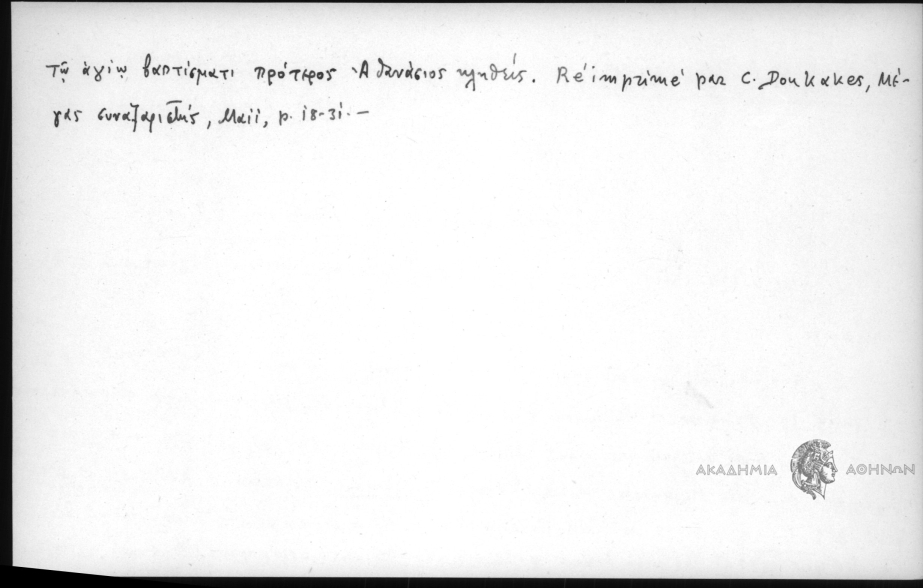 τῷ ἁγίῳ βαπτίσματι πρότερος Ἀθανάσιος κληθείς. Réimprimé par C. Doukakes, Μέ-
γας συναξαριστής, Maii, p. 18-31.—
ΑΚΑΔΗΜΙΑ ΑΘΗΝΩΝ